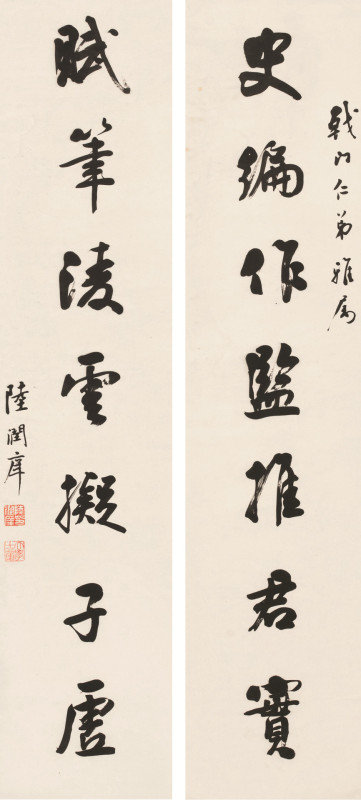 戟門仁弟雅屬
史編作監推君實
賦筆淩雲擬子虛
陸潤庠